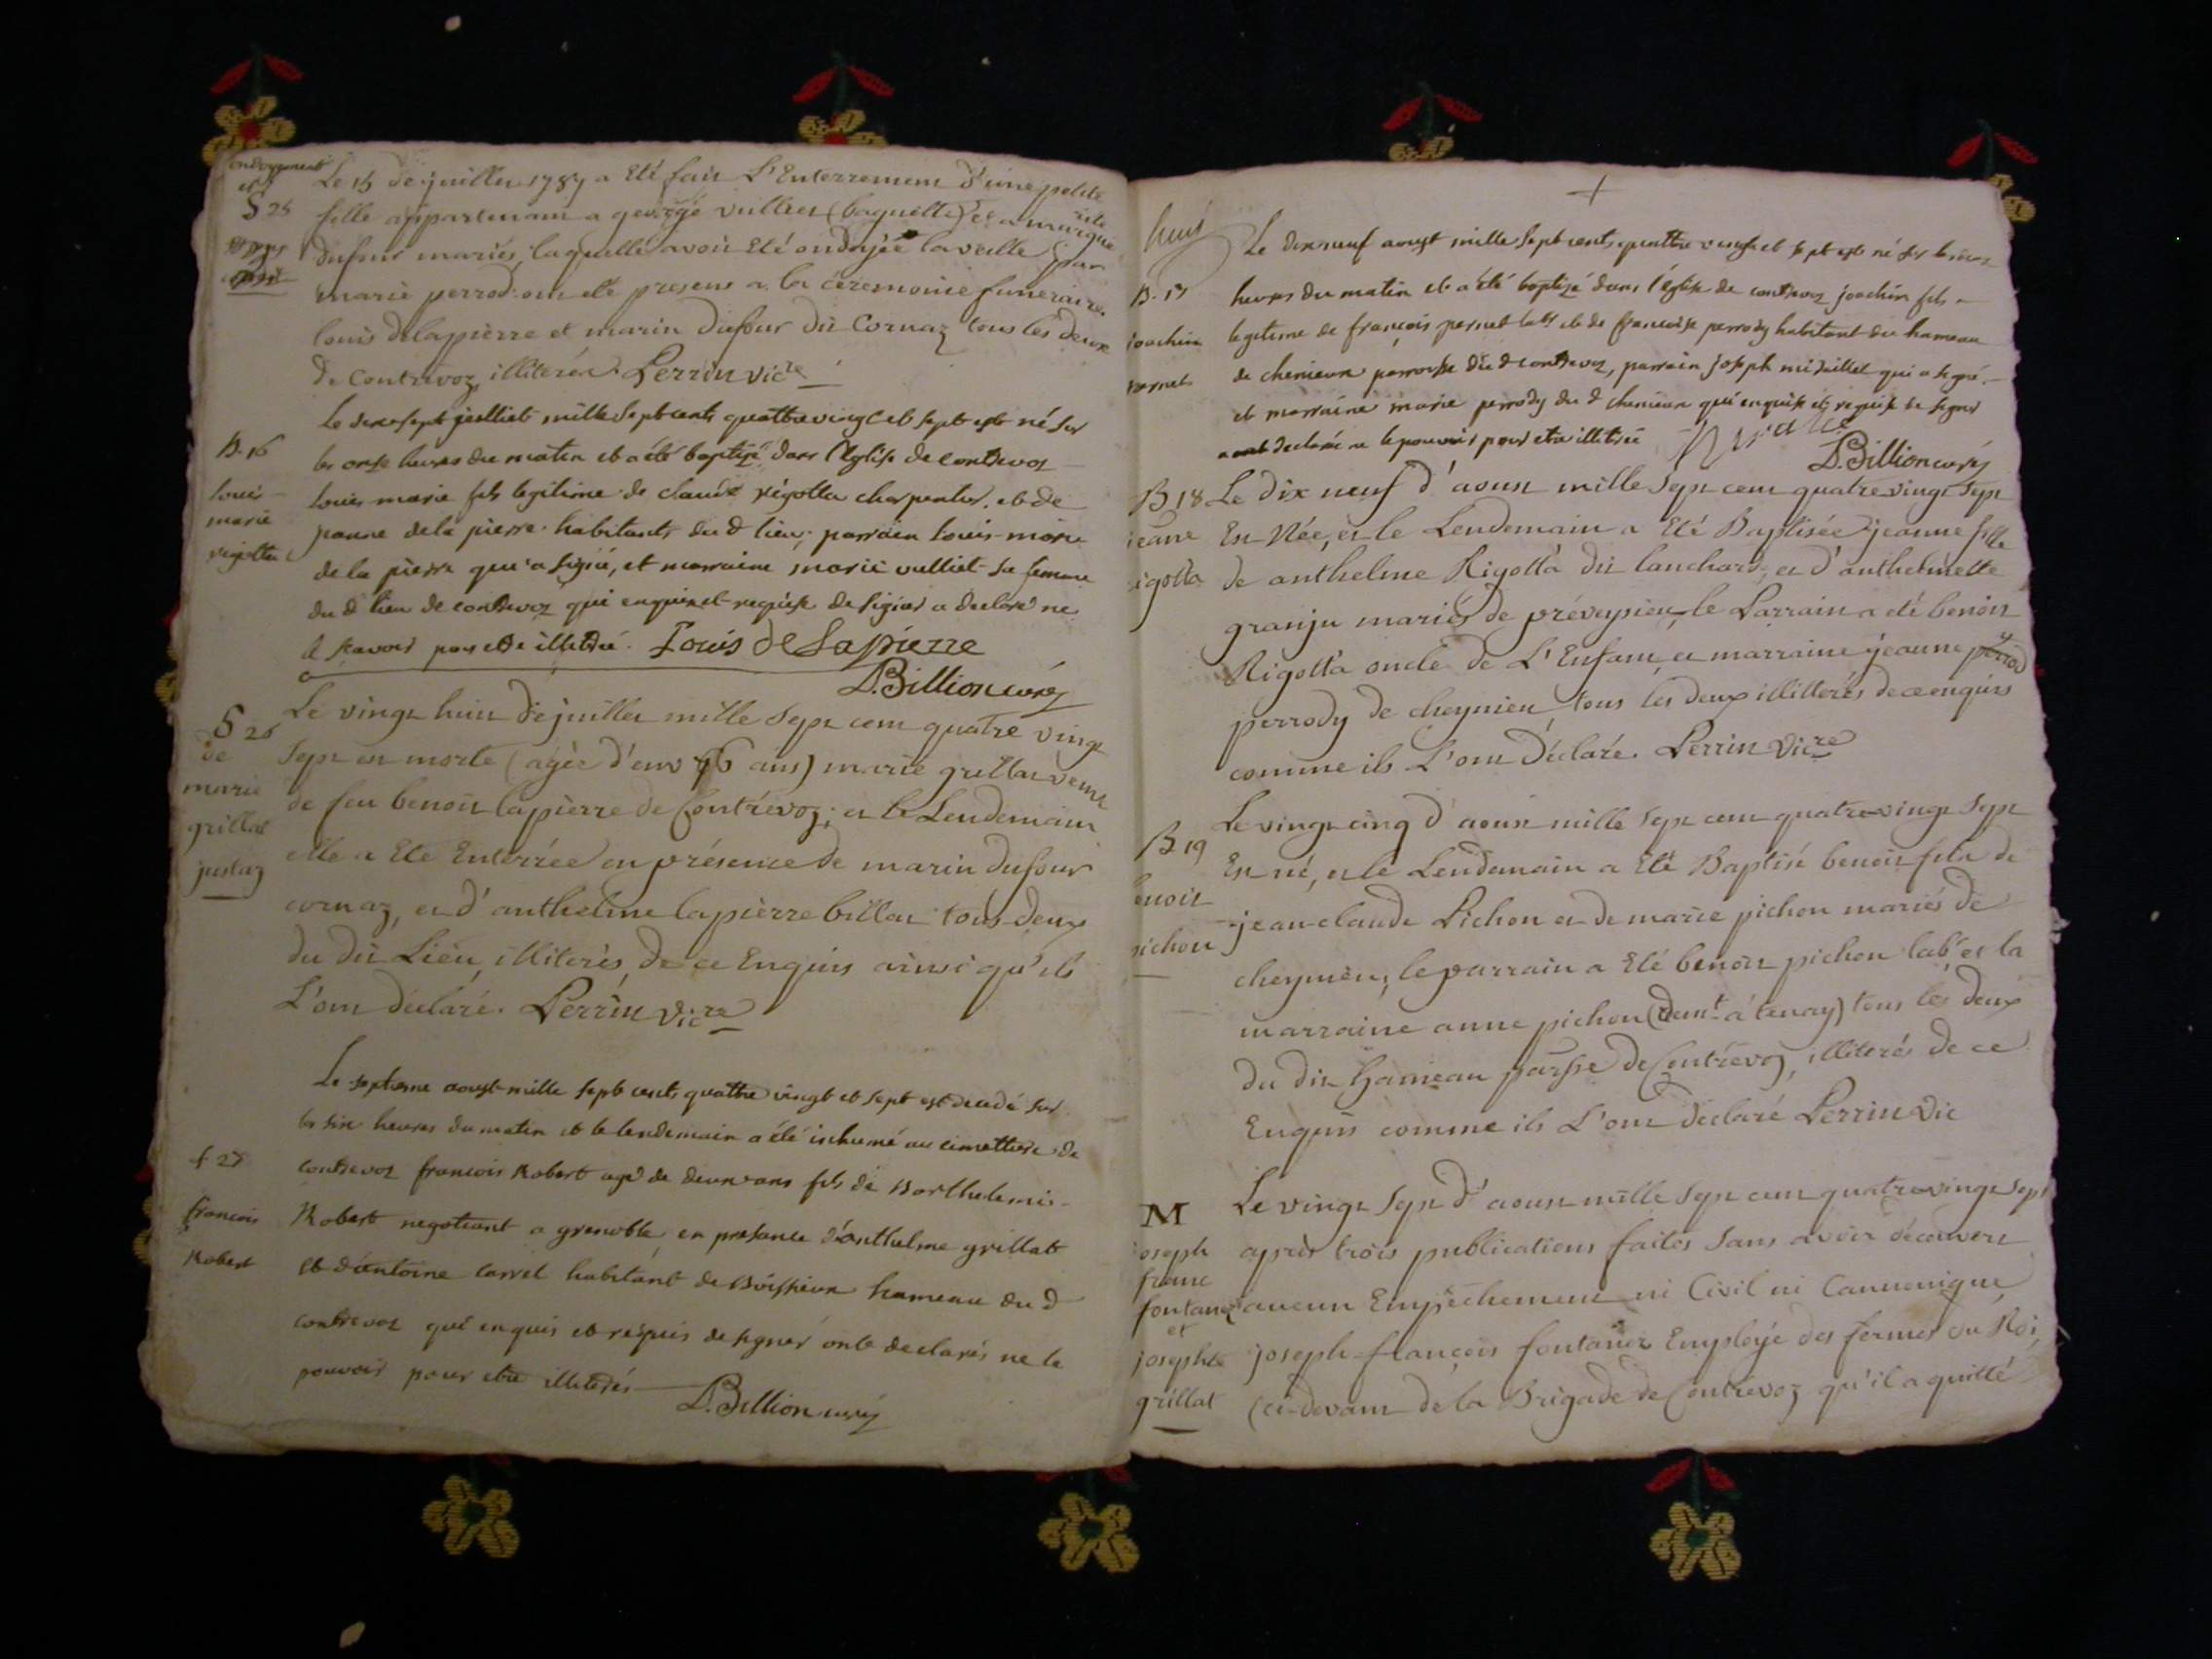 ondoyement
et
S 25
Le 15 de juillet 1787 a Eté fait L'Enterrement d'une petite
fille appartenant a george vulliet (baquille) et a margue
rite
dufour mariés, laquelle avoit Eté ondoyée la veille par
marie perrod. ont été presens a la cérémonie funeraire,
louis delapierre et marin dufour dit Cornaz tous les deux
de Contrevoz illiterés. Perrin vic.re
B. 16
louis
marie
rigotta
Le dixesept jeulliet mille sept cents quattre vingt et sept est né sur
les onse heures du matin et a été baptizé dans l'église de contrevoz
louis marie fils legitime de claude rigotta charpentier, et de
de la pierre habitants du d lieu; parrain louis marie
de la pierre qui a signé, et marraine marie vulliet sa femme
du d lieu de contrevoz qui enquise et requise de signer a declaré ne
le scavoir pour etre illetrée. Louis de Lapierre
D. Billion curé
S 26
de
marie
grillat
justaz
Le vingt huit de juillet mille sept cent quatre vingt
sept est morte (agée d'env 76 ans) marie grillat veuve
de feu benoit lapierre de Contrevoz; et le Lendemain
elle a Eté Enterrée en présence de marin dufour
cornaz, et d'anthelme lapierre billat tous deux
du dit Lieu, illiterés, de ce Enquis ainsi qu'ils
L'ont déclaré. Perrin Vic.re
f 27
francois
Robert
Le septieme aoust mille sept cents quattre vingt et sept est decedé sur
les six heures du matin et le lendemain a été inhumé au cimettiere de
contrevoz francois Robert agé de deux ans fils de Barthelemis
Robert negotiant a grenoble, en presance d'anthelme grillat
et d'antoine carrel habitant de Boissieux hameau du d
contrevoz qui enquis et requis de signer ont declarés ne le
pouvoir pour etre illeterés
D. Billion curé
+
huit
B. 17
joachin
pernet
Le dixneuf aoust mille sept cents quattre vingt et sept est né sur les
heures du matin et a été baptizé dans l'église de contrevoz joachin fils
legitime de françois pernet labr et de francoise perrody habitant du hameau
de chenieux parroisse du d contrevoz, parrain joseph qui a signé
et marraine marie perrody du d chenieux qui enquise et requise de signer
a declaré ne le pouvoir pour etre illitrée
D. Billion curé
B 18
jeane
rigotta
Le dix neuf d'aoust mille sept cent quatre vingt sept
Est Née, et le Lendemain a Eté Baptisée jeanne fille
de anthelme Rigotta dit lanchard, et d'anthelmette
granju mariés de préveysieu, le Parrain a eté benoit
Rigotta oncle de L'Enfant, et marraine jeanne perrod
perrody de cheynieu, tous les deux illitterés de ce enquis
comme ils L'ont Déclaré. Perrin Vic.re
B 19
benoit
pichon
Le vingt cinq d'aoust mille sept cent quatre vingt sept
Est né, et le Lendemain a Eté Baptisé benoit fils de
jean-claude Pichon et de marie pichon mariés de
cheynieu; le parrain a Eté benoit pichon lab.r et la
marraine anne pichon (dem.t a tenay) tous les deux
du dit hameau parsse de Contrevoz, illiterés de ce
Enquis comme ils L'ont declaré Perrin Vic
M
joseph
franc
fontanez
et
josephte
grillat
Le vingt sept d'aoust mille sept cent quatre vingt sept
après trois publications faites sans avoir découvert
aucun Empêchement ni Civil ni Cannonique
joseph-françois fontanez Employé des fermes du Roi,
(ci-devant de la Brigade de Contrevoz qu'il a quitté